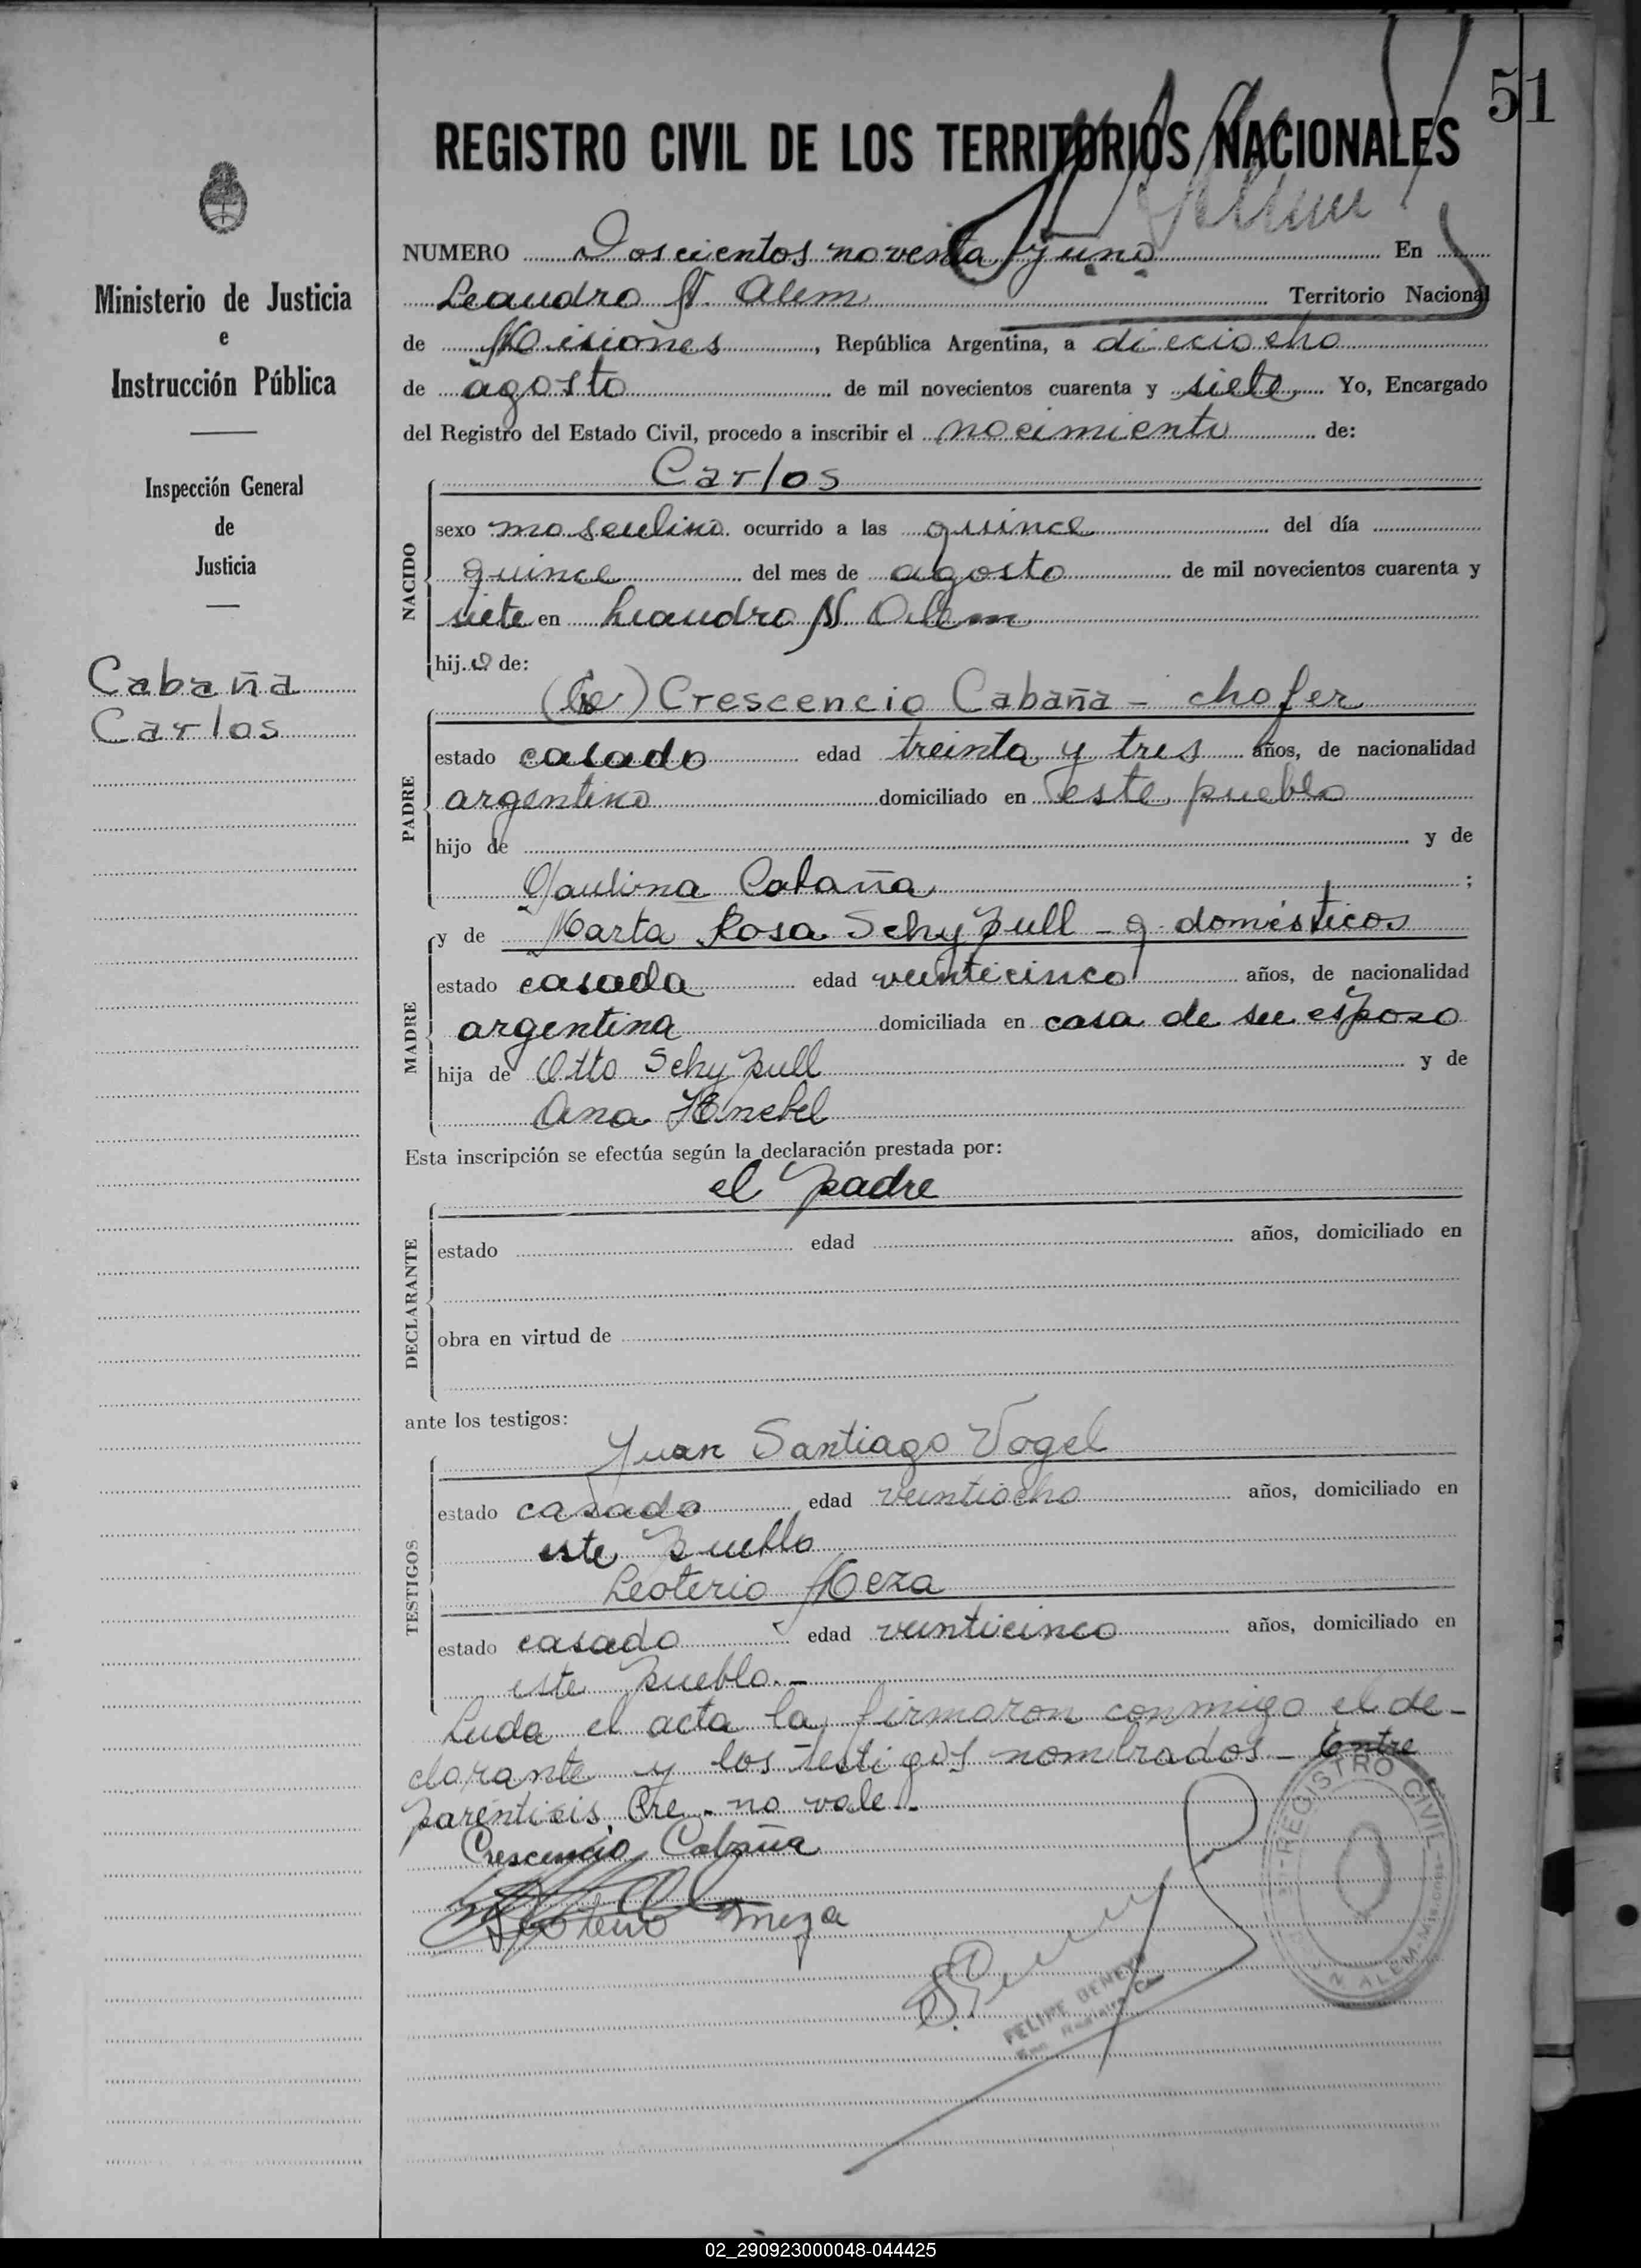 51
REGISTRO CIVIL DE LOS TERRITORIOS NACIONALES
Ministerio de Justicia
e
Instrucción Pública
Inspección General
de
Justicia
Cabaña
Carlos
NUMERO Doscientos noventa y uno En
Leandro N. Alem Territorio Nacional
de Misiones, República Argentina, a dieciocho
de agosto de mil novecientos cuarenta y siete Yo, Encargado
del Registro del Estado Civil, procedo a inscribir el nacimiento de:
Carlos
NACIDO
sexo masculino ocurrido a las quince del día
quince del mes de agosto de mil novecientos cuarenta y
siete en Leandro N. Alem
hijo de:
( ) Crescencio Cabaña - chofer
PADRE
estado casado edad treinta y tres años, de nacionalidad
argentino domiciliado en este pueblo
hijo de y de
Paulina Cabaña ;
MADRE
y de Marta Rosa Schypull - q. domésticos
estado casada edad veinticinco años, de nacionalidad
argentina domiciliada en casa de su esposo
hija de Otto Schypull y de
Ana
Esta inscripción se efectúa según la declaración prestada por:
el padre
DECLARANTE
estado edad años, domiciliado en
obra en virtud de
ante los testigos:
Juan Santiago Vogel
TESTIGOS
estado casado edad veintiocho años, domiciliado en
este pueblo
Leoterio Meza
estado casado edad veinticinco años, domiciliado en
este pueblo.-
Leida el acta la firmaron conmigo el de-
clarante y los testigos nombrados - Entre
paréntisis, Cre - no vale.-
Crescencio Cabaña
Leoterio Meza
REGISTRO CIVIL
N. ALEM - Misiones
FELIPE BENEY
Enc. Registro Civil
02_290923000048-044425